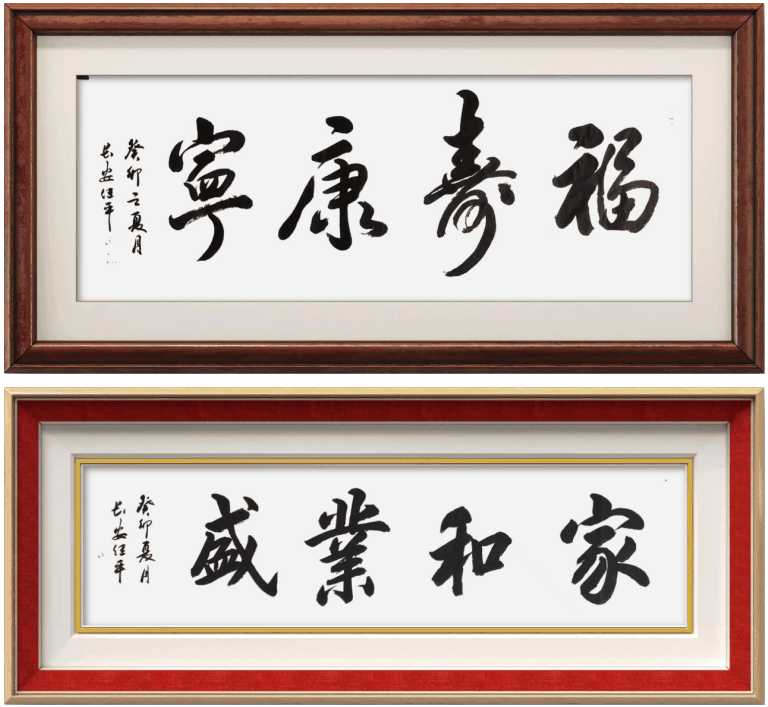 福壽康寧
癸卯之夏月
长安任平
家和業盛
癸卯夏月
长安任平